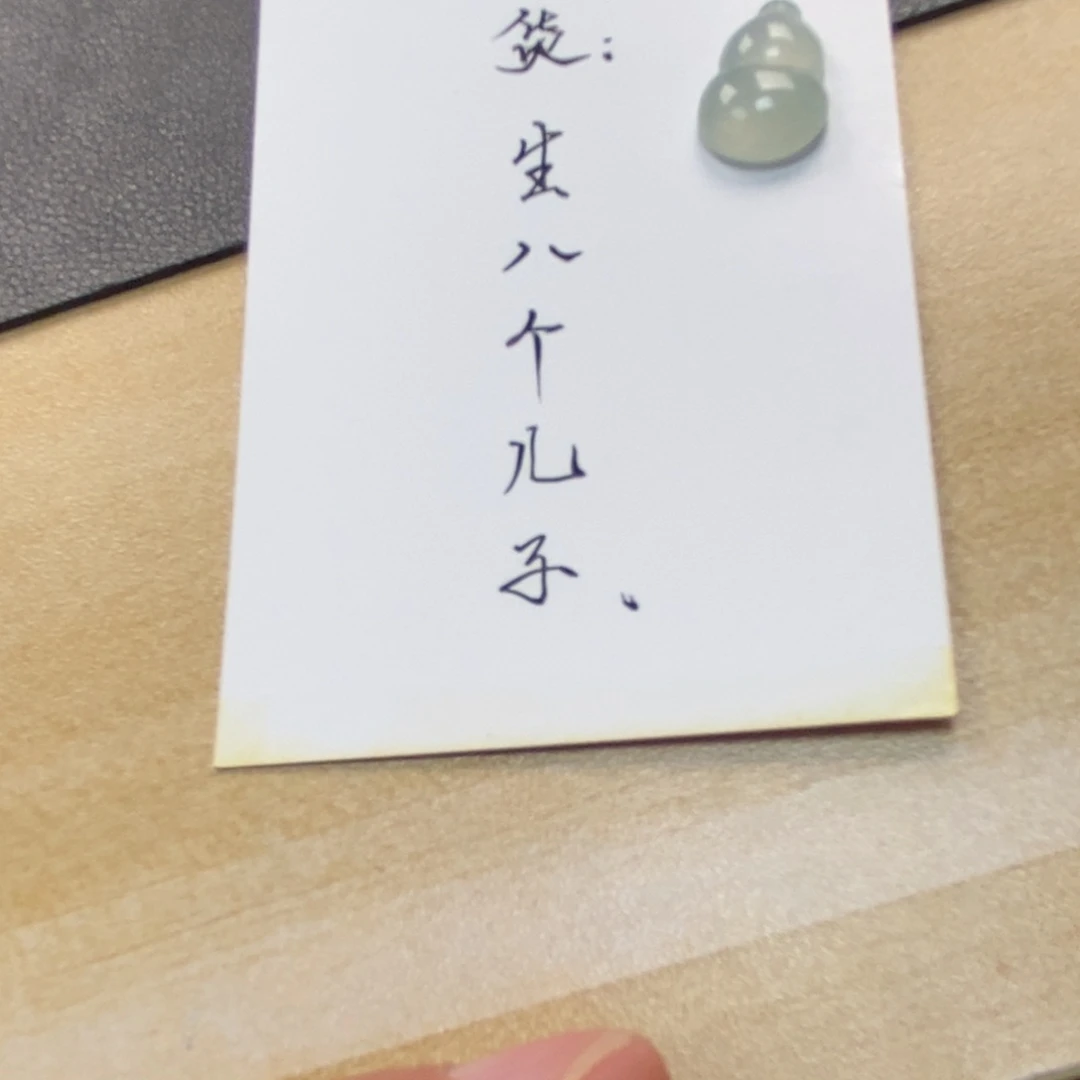 生八个儿子。